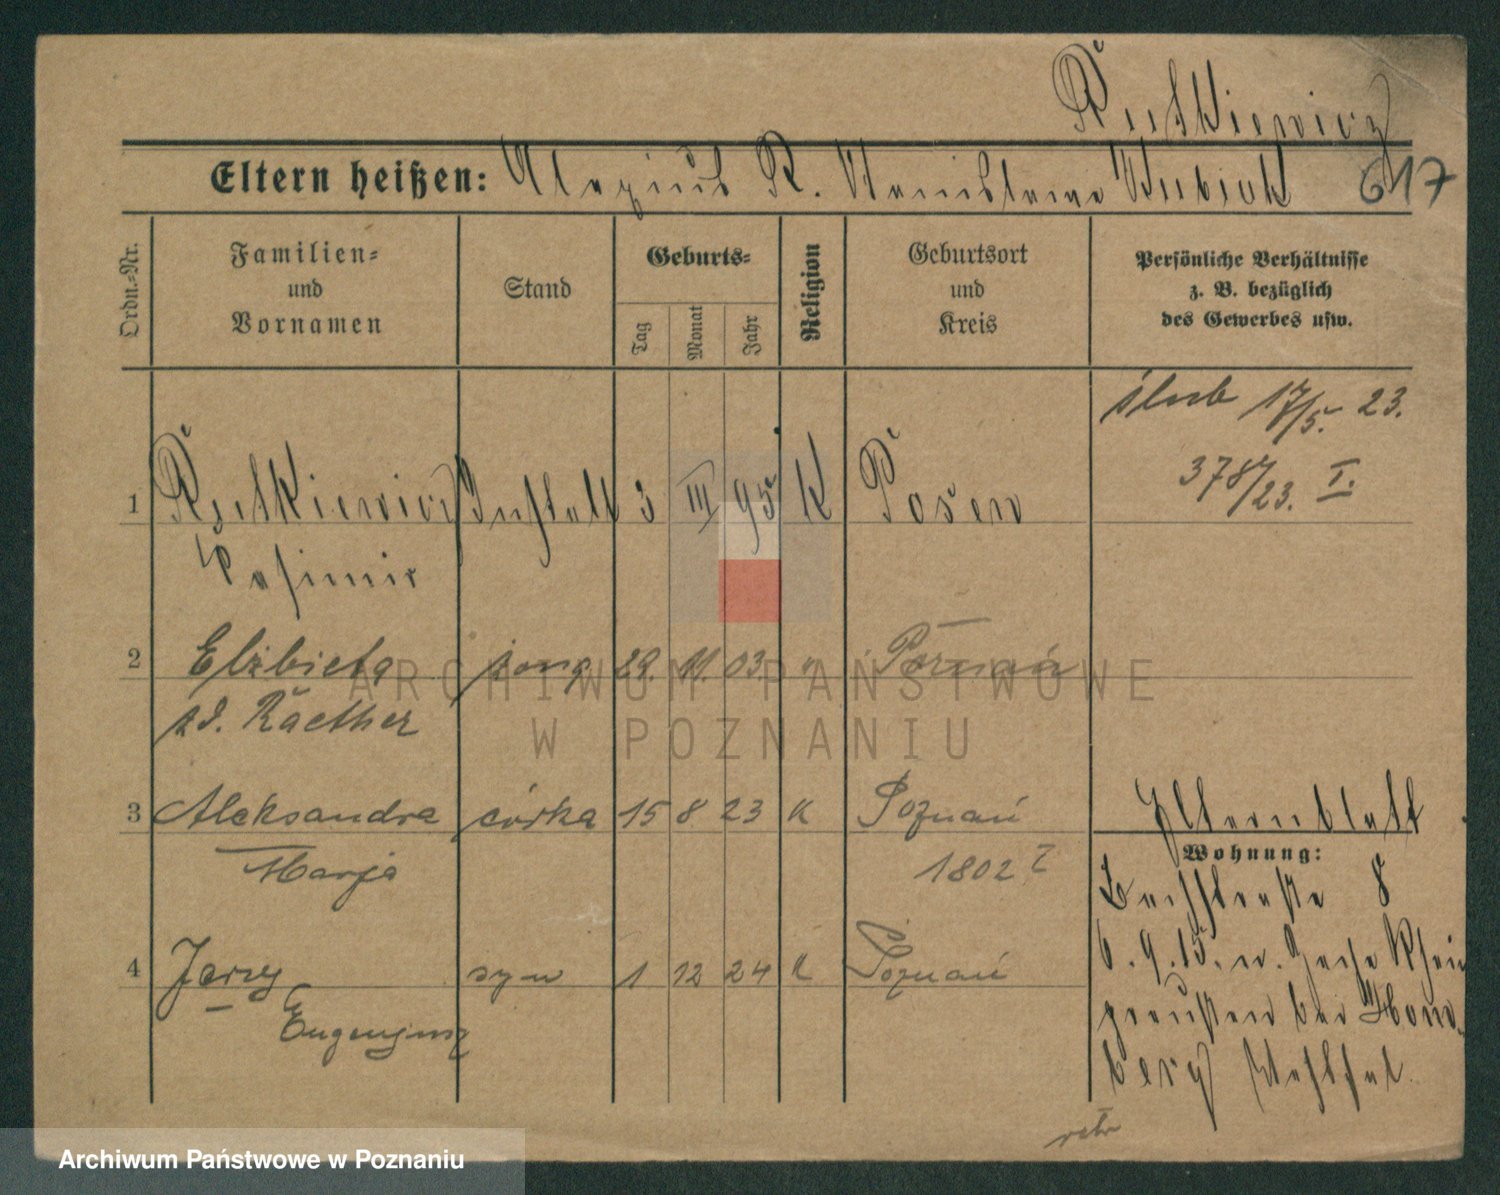 Rutkiewicz
Eltern heißen: Alexius R. Stanislawa Kubiak 617
Ordn.=Nr.
Familien=
und
Vornamen
Stand
Geburts=
Tag
Monat
Jahr
Religion
Geburtsort
und
Kreis
Persönliche Verhältnisse
z. B. bezüglich
des Gewerbes usw.
ślub 17/5. 23.
3787/23. I.
1 Rutkiewicz 3 III 95 K Posen
Kasimir
2 Elżbieta żona 29. 11. 03. " Poznań
z d. Raether
3 Aleksandra córka 15 8 23 K Poznań
Marja 1802
4 Jerzy syn 1 12 24 K Poznań
Eugenjusz
Elternblatt
Wohnung:
8
6.9.15. n.
bei Hom-
berg
ARCHIWUM PAŃSTWOWE
W POZNANIU
Archiwum Państwowe w Poznaniu